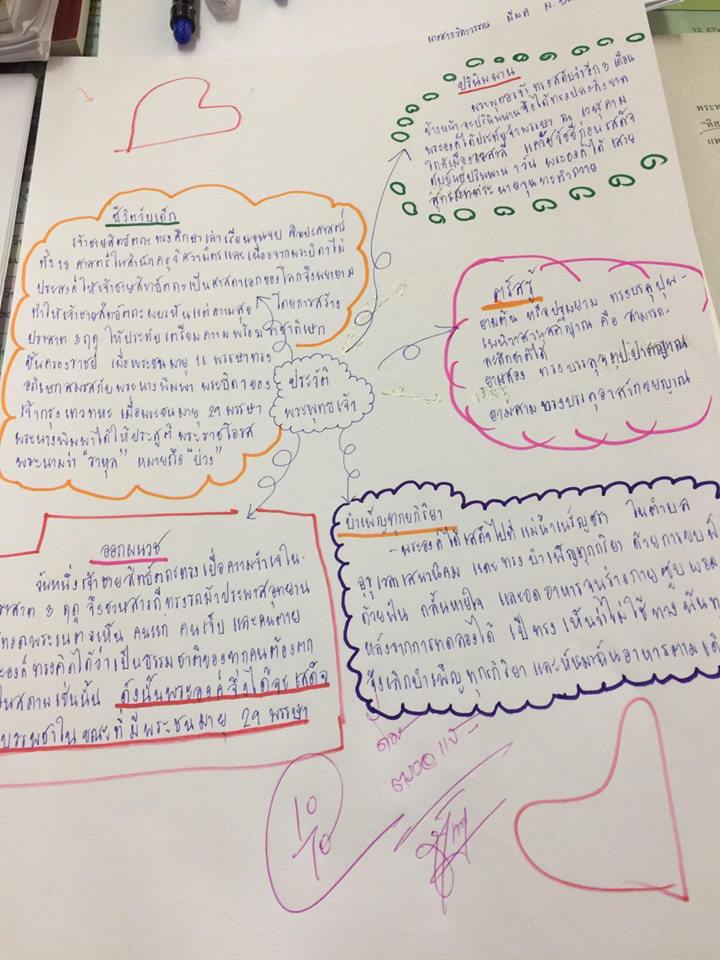 นางสาววิภาวรรณ
ประวัติ
พระพุทธเจ้า
ชีวิตวัยเด็ก
เจ้าชายสิทธัตถะ ทรงศึกษาเล่าเรียนจนจบ ศิลปะศาสตร์
ทั้ง 18 ศาสตร์ ในสำนักครูวิศวามิตร และเนื่องจากพระบิดาไม่
ประสงค์ให้เจ้าชายสิทธัตถะเป็นศาสดาเอกของโลกจึงพยายาม
ทำให้เจ้าชายสิทธัตถะพบเห็นแต่ความสุข โดยการสร้าง
ปราสาท 3 ฤดู ให้ประทับ เตรียมความพร้อม
ขึ้นครองราชย์ เมื่อพระชนมายุ 16 พรรษาทรง
อภิเษกสมรสกับพระนางพิมพา พระธิดาของ
เจ้ากรุงเทวทหะ เมื่อพระชนมายุ 29 พรรษา
พระนางพิมพาได้ให้ประสูติ พระราชโอรส
พระนามว่า "ราหุล" หมายถึง "บ่วง"
ปรินิพพาน
พระพุทธเจ้า ทรงสดับว่าอีก 3 เดือน
ข้างหน้าจะปรินิพพาน จึงได้ทรงปลงสังขาร
พระองค์ได้ประทับจำพรรษา ณ เวฬุคาม
ใกล้เมืองเวสาลี แคว้นวัชชี ก่อนเสด็จ
ดับขันธ์ปรินิพพาน 1 วัน พระองค์ได้เสวย
ตรัสรู้
ยามต้น หรือปฐมยาม ทรงบรรลุปุพ-
เพนิวาสานุสติญาณ คือ สามารถ
ระลึกชาติได้
ยามสอง ทรงบรรลุจุตูปปาตญาณ
ยามสามทรงบรรลุอาสวักขยญาณ
ออกผนวช
วันหนึ่งเจ้าชายสิทธัตถะทรงเบื่อความจำเจใน
ปราสาท 3 ฤดู จึงชวนสารถีทรงรถม้าประพาสอุทยาน
ทอดพระเนตรเห็น คนแก่ คนเจ็บ และคนตาย
พระองค์ทรงคิดได้ว่าเป็นธรรมชาติของทุกคนต้องตก
ในสภาพเช่นนั้น ดังนั้นพระองค์จึงได้จะเสด็จ
บรรพชาในขณะที่มีพระชนมายุ 29 พรรษา
บำเพ็ญทุกรกิริยา
- พระองค์ได้เสด็จไปที่แม่น้ำเนรัญชรา ในตำบล
อุรุเวลาเสนานิคม และทรงบำเพ็ญทุกกิริยา ด้วยการขบฟัน
ด้วยฟัน กลั้นหายใจ และอดอาหารจนร่างกายซูบผอม
หลังจากการทดลองได้ ปี ทรงเห็นว่าไม่ใช่ทางพ้นทุกข์
จึงเลิกบำเพ็ญทุกรกิริยา และหันมาฉันอาหารตามเดิม
10
10